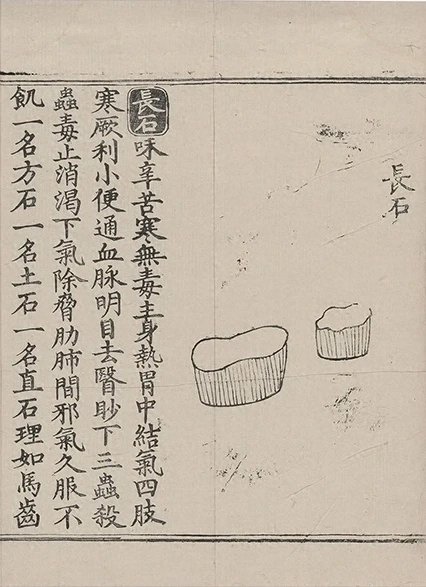 長石
長石味辛苦寒無毒主身熱胃中結氣四肢
寒厥利小便通血脉明目去瞖眇下三蟲殺
蠱毒止消渴下氣除脅肋肺間邪氣久服不
飢一名方石一名土石一名直石理如馬齒